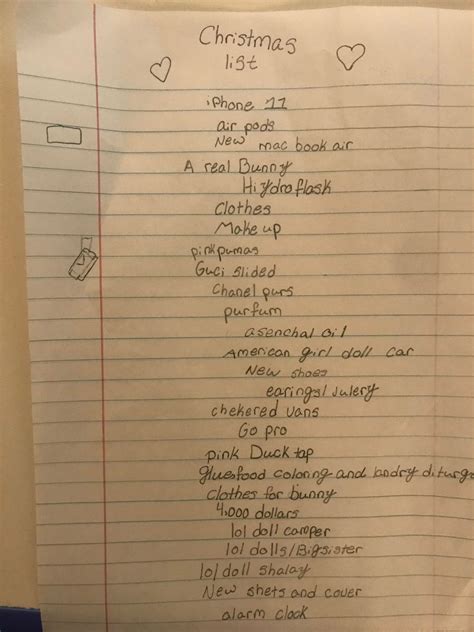 Christmas
list
iPhone 11
air pods
New mac book air
A real Bunny
Hiydroflask
Clothes
Make up
pink pumas
Guci slided
Chanel purs
purfum
asenchal oil
American girl doll car
New shoes
earings/Julery
chekered vans
Go pro
pink Duck tap
glue food coloring and landry diturge
clothes for bunny
4,000 dollars
lol doll camper
lol dolls/Bigsister
lol doll shalay
New shets and cover
alarm clock